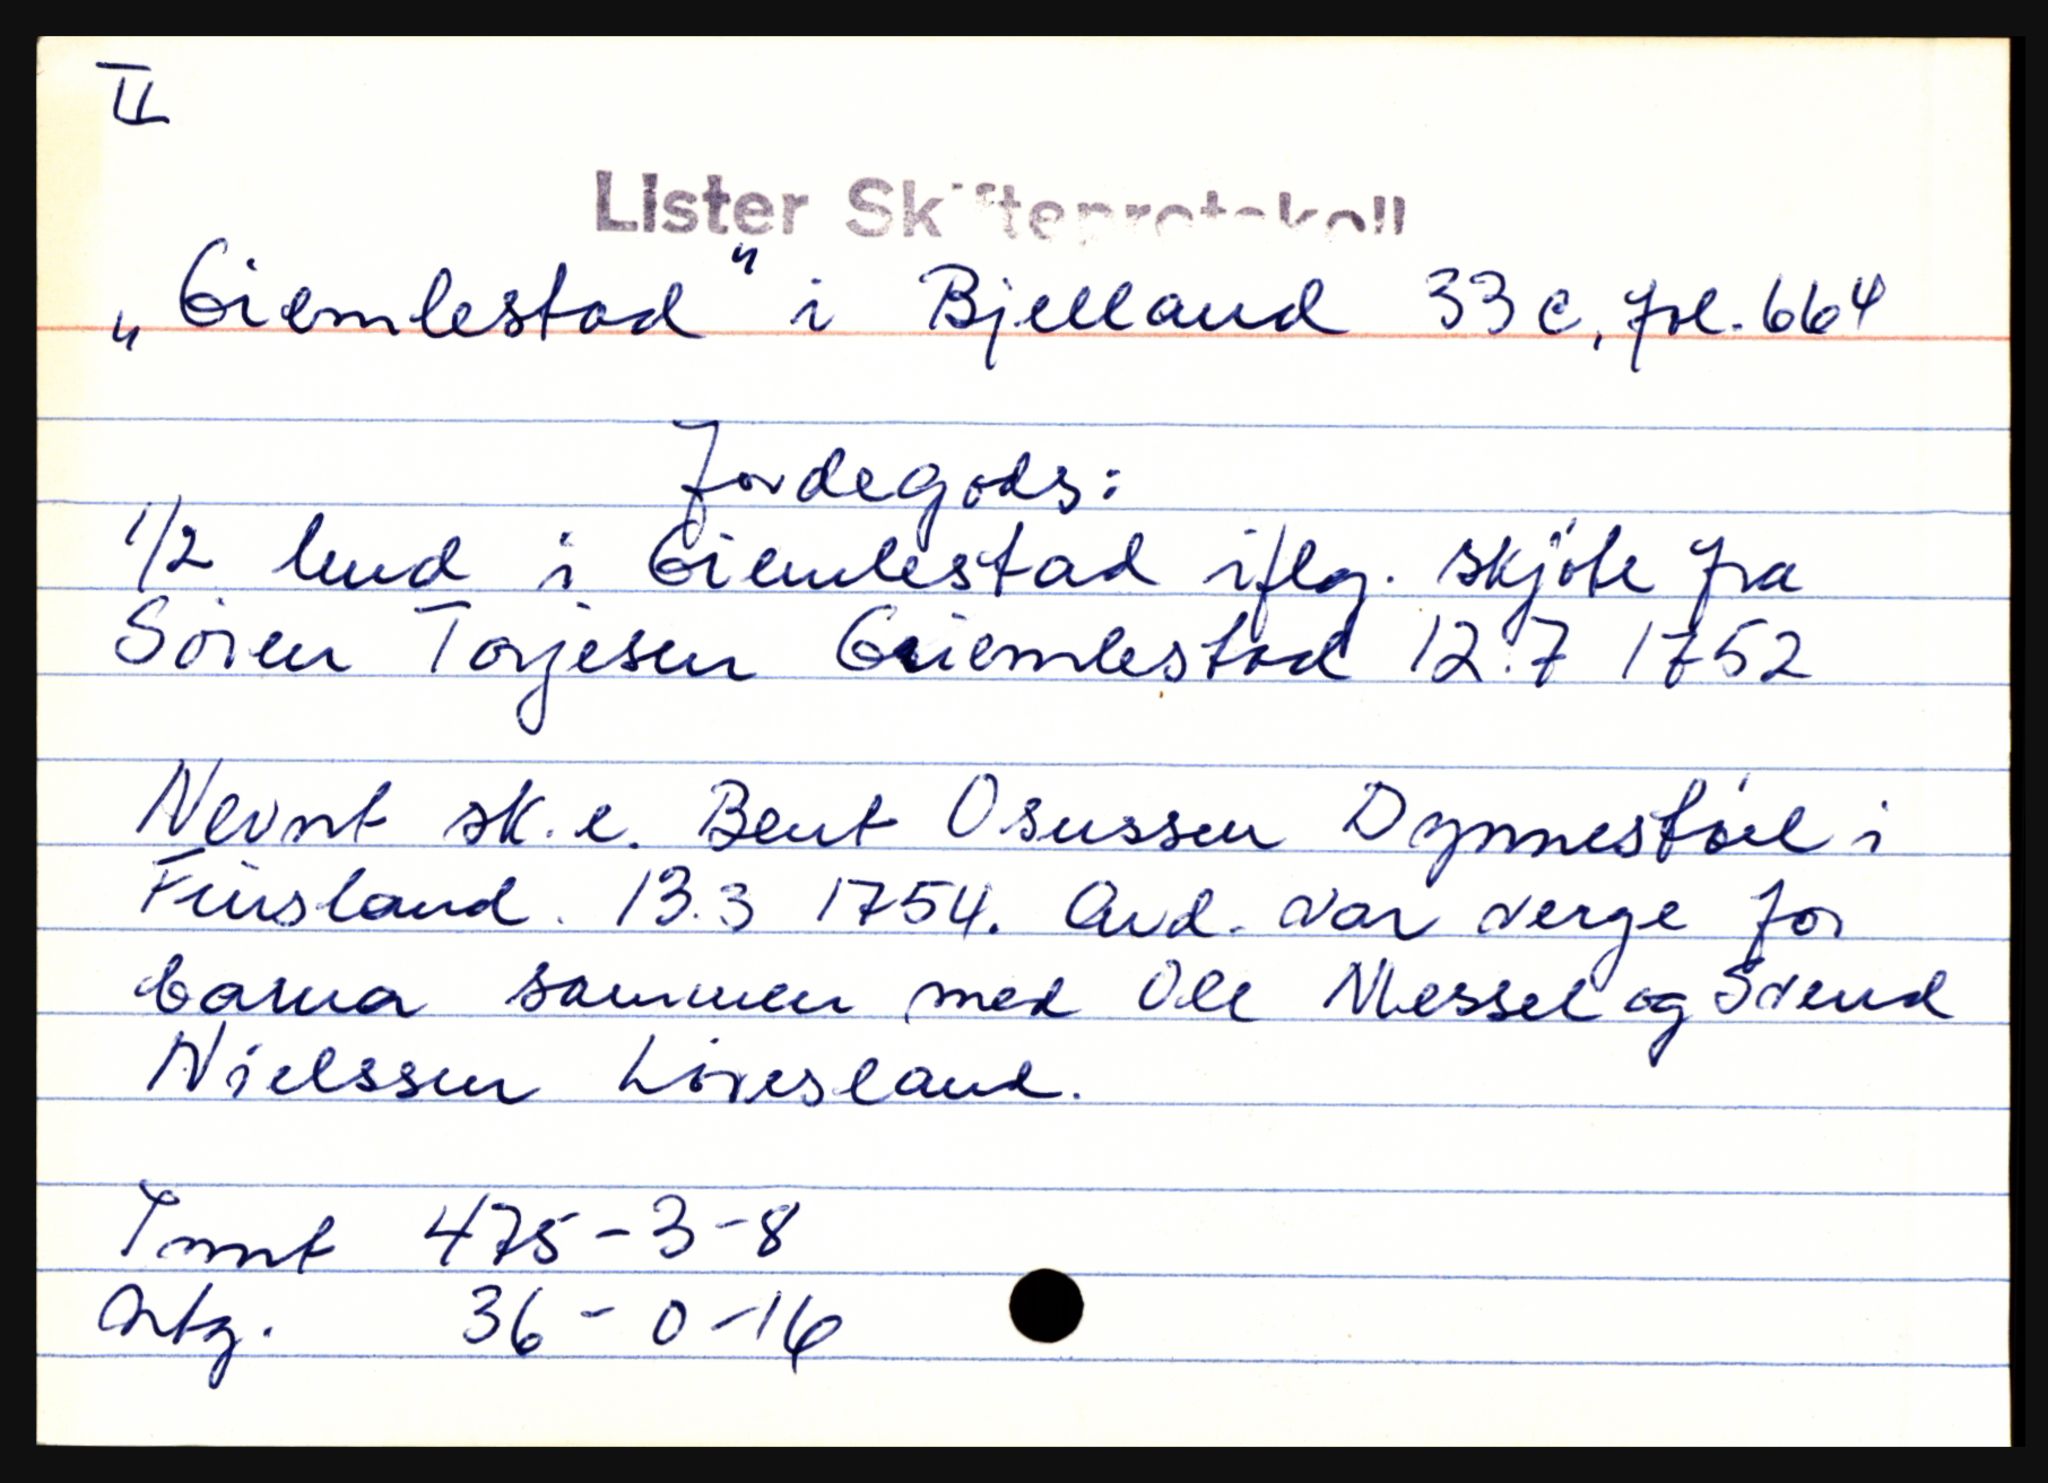 II
Lister Skifteprotokoll
„Giemlestad" i Bjelland 33c, fol. 664
Jordegods:
1/2 hud i Giemlestad iflg. skjöte fra
Sören Torjesen Giemlestad 12.7 1752
Nevnt sk.e. Bent Osussen Dynnestöel i
Finsland. 13.3 1754. Avd. var verge for
barna sammen med Ole Messel og Svend
Nielssen Lövesland.
Innt 475-3-8
Artg. 36-0-16